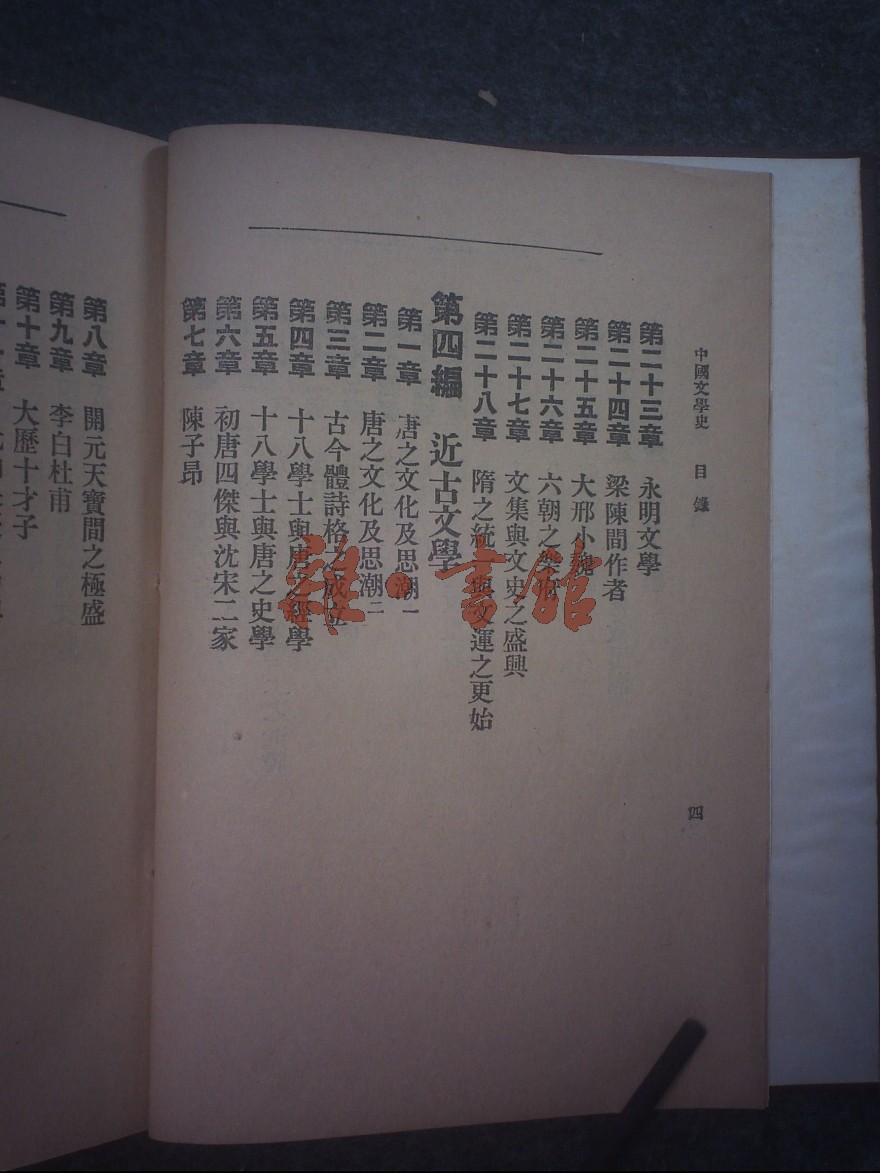 中國文學史 目錄 四
第二十三章 永明文學
第二十四章 梁陳間作者
第二十五章 大邢小魏
第二十六章 六朝之
第二十七章 文集與文史之盛興
第二十八章 隋之統一與文運之更始
第四編 近古文學
第一章 唐之文化及思潮一
第二章 唐之文化及思潮二
第三章 古今體詩格之成立
第四章 十八學士與唐之經學
第五章 十八學士與唐之史學
第六章 初唐四傑與沈宋二家
第七章 陳子昂
第八章 開元天寶間之極盛
第九章 李白杜甫
第十章 大歷十才子
雜·書館